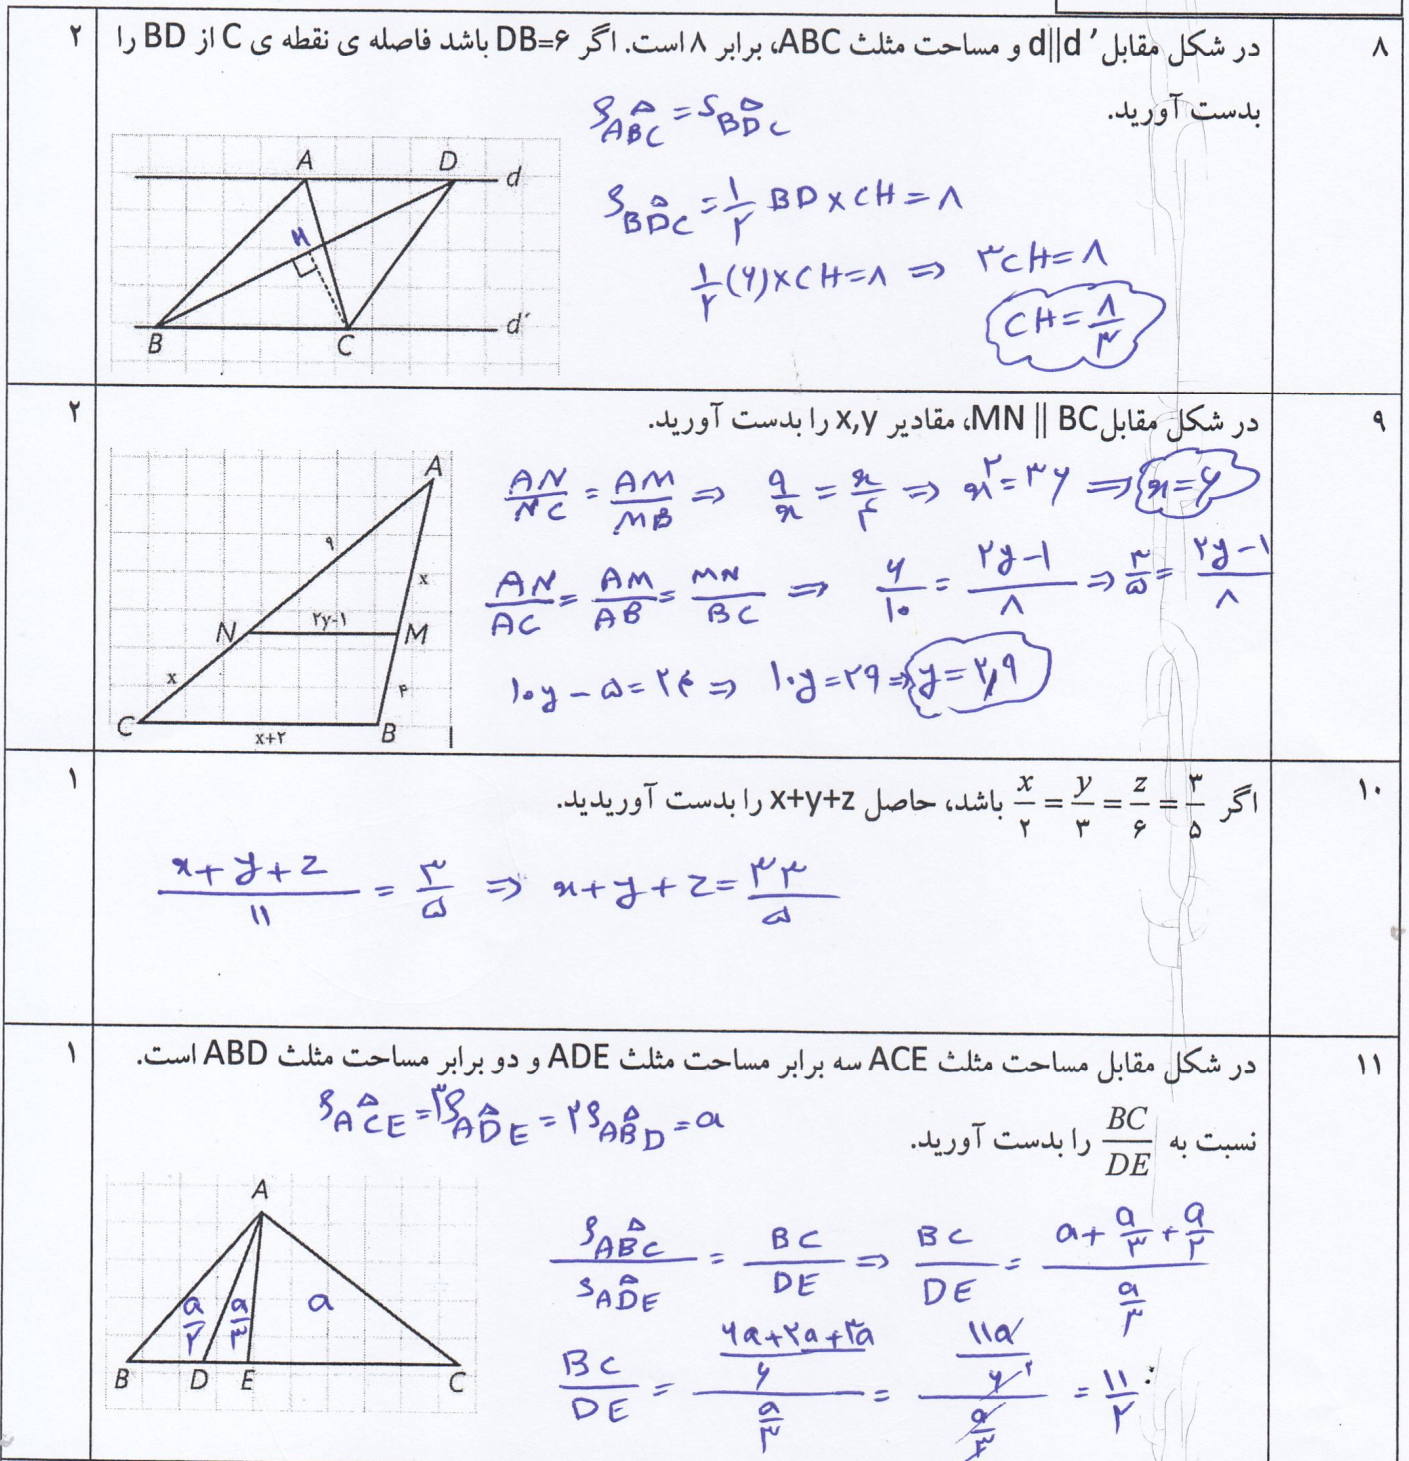 ۸
در شکل مقابل d||d′ و مساحت مثلث ABC، برابر ۸ است. اگر DB=۶ باشد فاصله ی نقطه ی C از BD را
۲
بدست آورید.
S ABC = S BDC
S BDC = ۱/۲ BD × CH = ۸
۱/۲ (۶) × CH = ۸ ⇒ ۳CH = ۸
CH = ۸/۳
A D d
H
B C d′
۹
در شکل مقابل MN || BC، مقادیر x,y را بدست آورید.
۲
AN/NC = AM/MB ⇒ ۹/x = x/۴ ⇒ x^۲ = ۳۶ ⇒ x = ۶
AN/AC = AM/AB = MN/BC ⇒ ۶/۱۰ = ۲y-۱/۸ ⇒ ۳/۵ = ۲y-۱/۸
۱۰y - ۵ = ۲۴ ⇒ ۱۰y = ۲۹ ⇒ y = ۲,۹
A
۹
x
N ۲y-۱ M
x ۴
C x+۲ B
۱۰
اگر x/۲ = y/۳ = z/۶ = ۳/۵ باشد، حاصل x+y+z را بدست آوریدید.
۱
x+y+z/۱۱ = ۳/۵ ⇒ x+y+z = ۳۳/۵
۱۱
در شکل مقابل مساحت مثلث ACE سه برابر مساحت مثلث ADE و دو برابر مساحت مثلث ABD است.
۱
نسبت به BC/DE را بدست آورید.
S ACE = ۳S ADE = ۲S ABD = a
S ABC/S ADE = BC/DE ⇒ BC/DE = a + a/۳ + a/۲ / a/۳
BC/DE = ۶a+۲a+۳a/۶ / a/۳ = ۱۱a/۶ ۲ / a/۳ = ۱۱/۲
A
a/۲ a/۳ a
B D E C